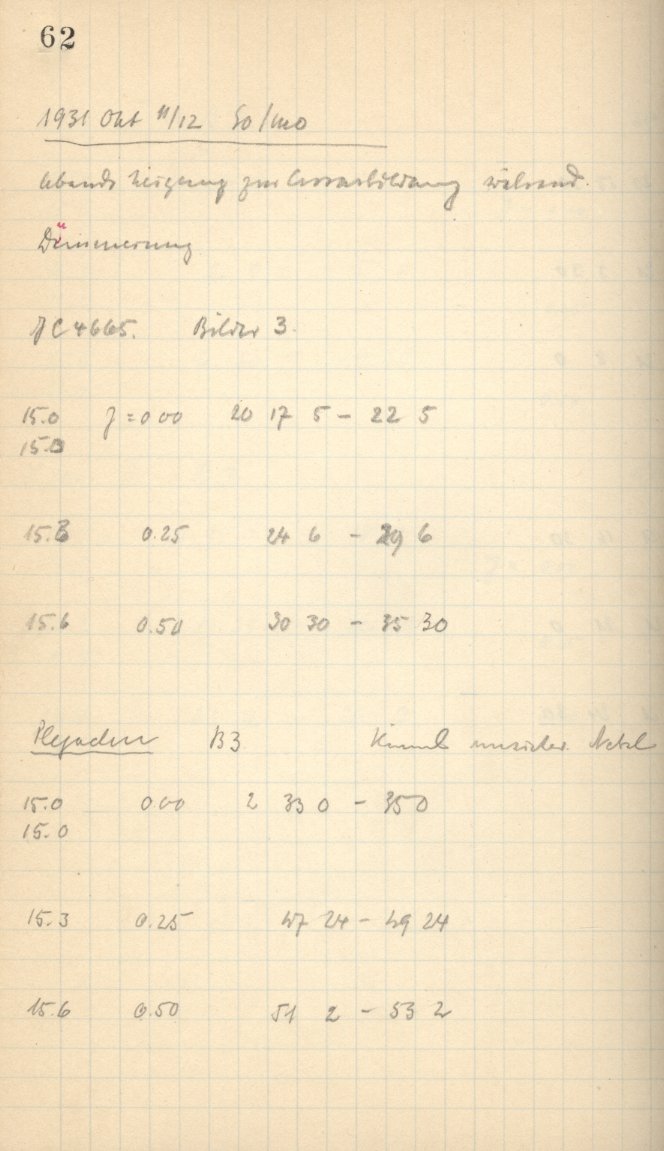 62
1931 Okt 11/12 So/Mo
Abends Neigung zur während
Dämmerung
JC 4665. Bilder 3.
15.0 J = 0 00 20 17 5 – 22 5
15.0
15.3 0.25 24 6 – 29 6
15.6 0.50 30 30 – 35 30
Plejaden B3 Himml unsicher. Nebel
15.0 0 00 2 33 0 – 35 0
15.0
15.3 0.25 47 24 – 49 24
15.6 0.50 51 2 – 53 2